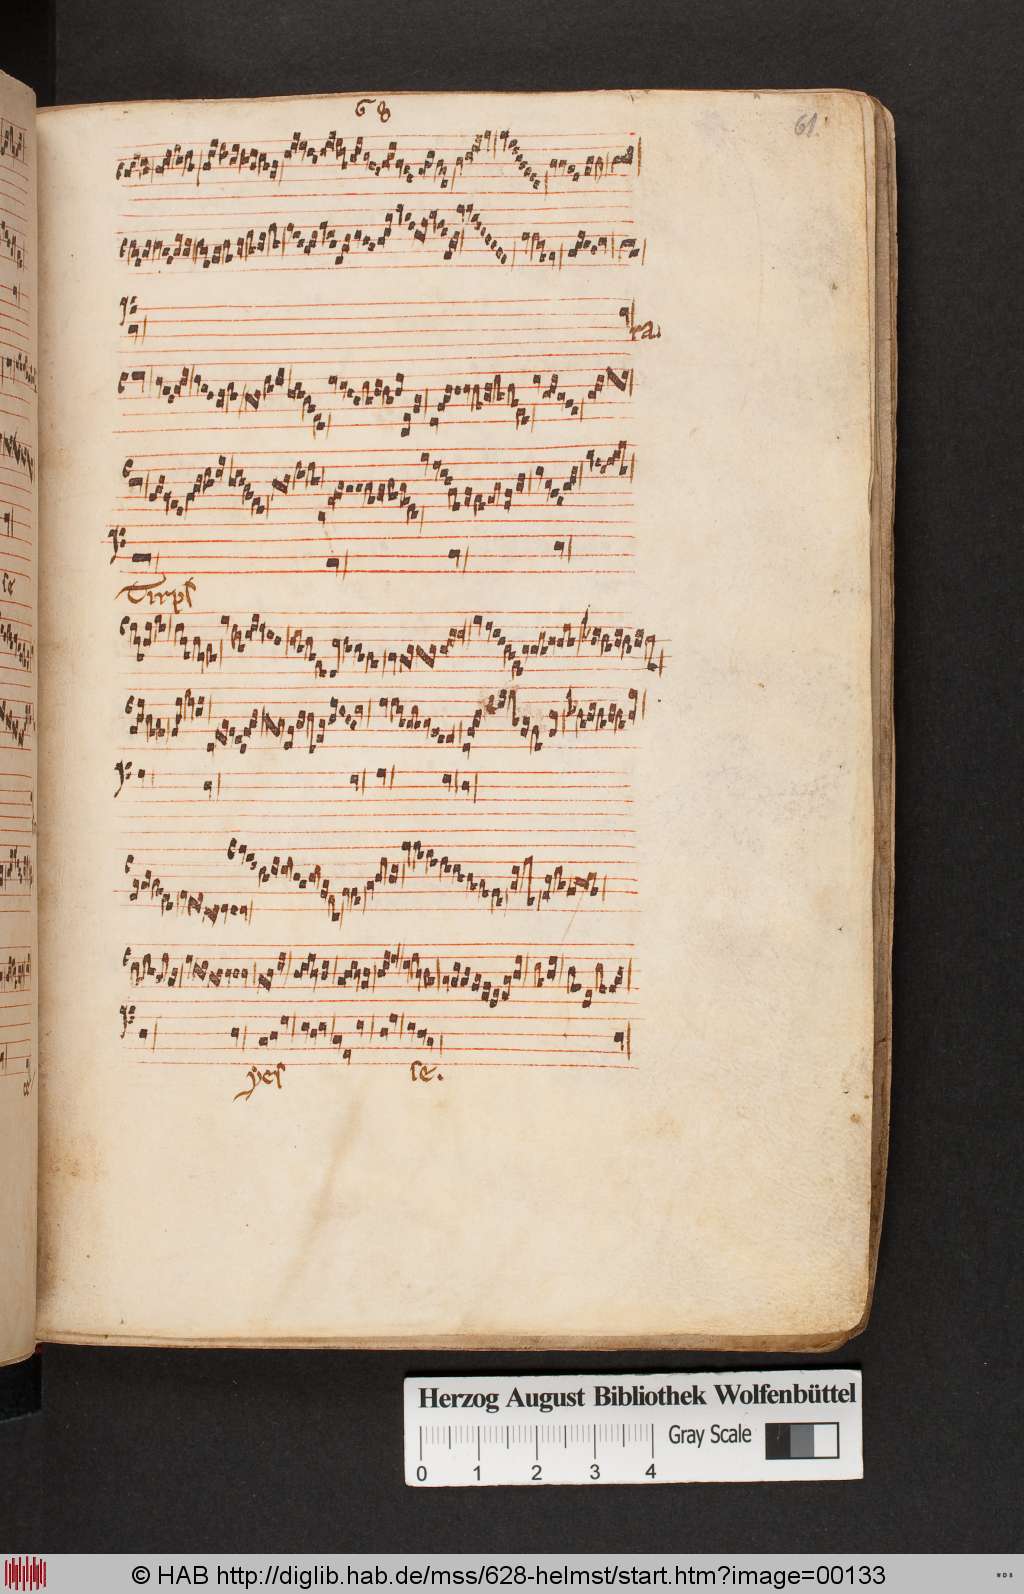 68
61.
ra.
Tirps
yes se.
se
Herzog August Bibliothek Wolfenbüttel
0 1 2 3 4
Gray Scale
© HAB http://diglib.hab.de/mss/628-helmst/start.htm?image=00133